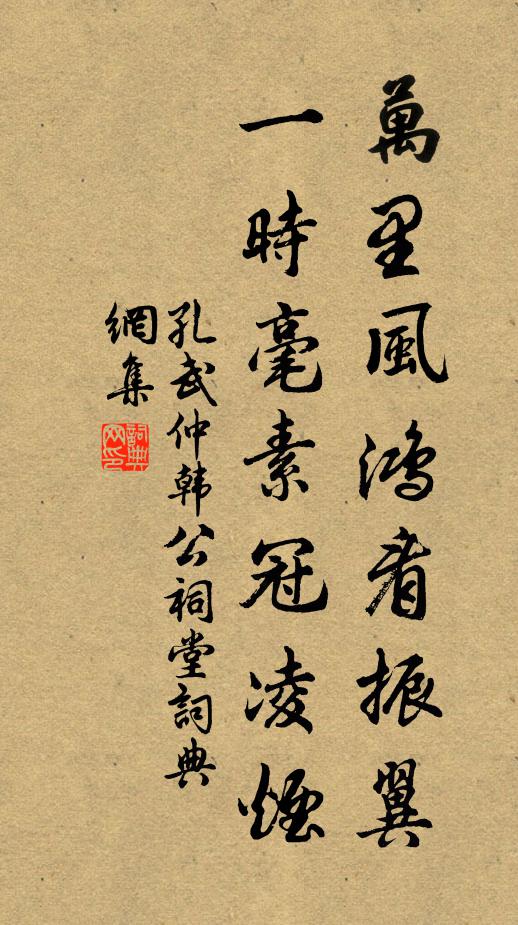 萬里風鴻看振翼
一時毫素冠凌煙
孔武仲韩公祠堂詞典
網集
詞典網印